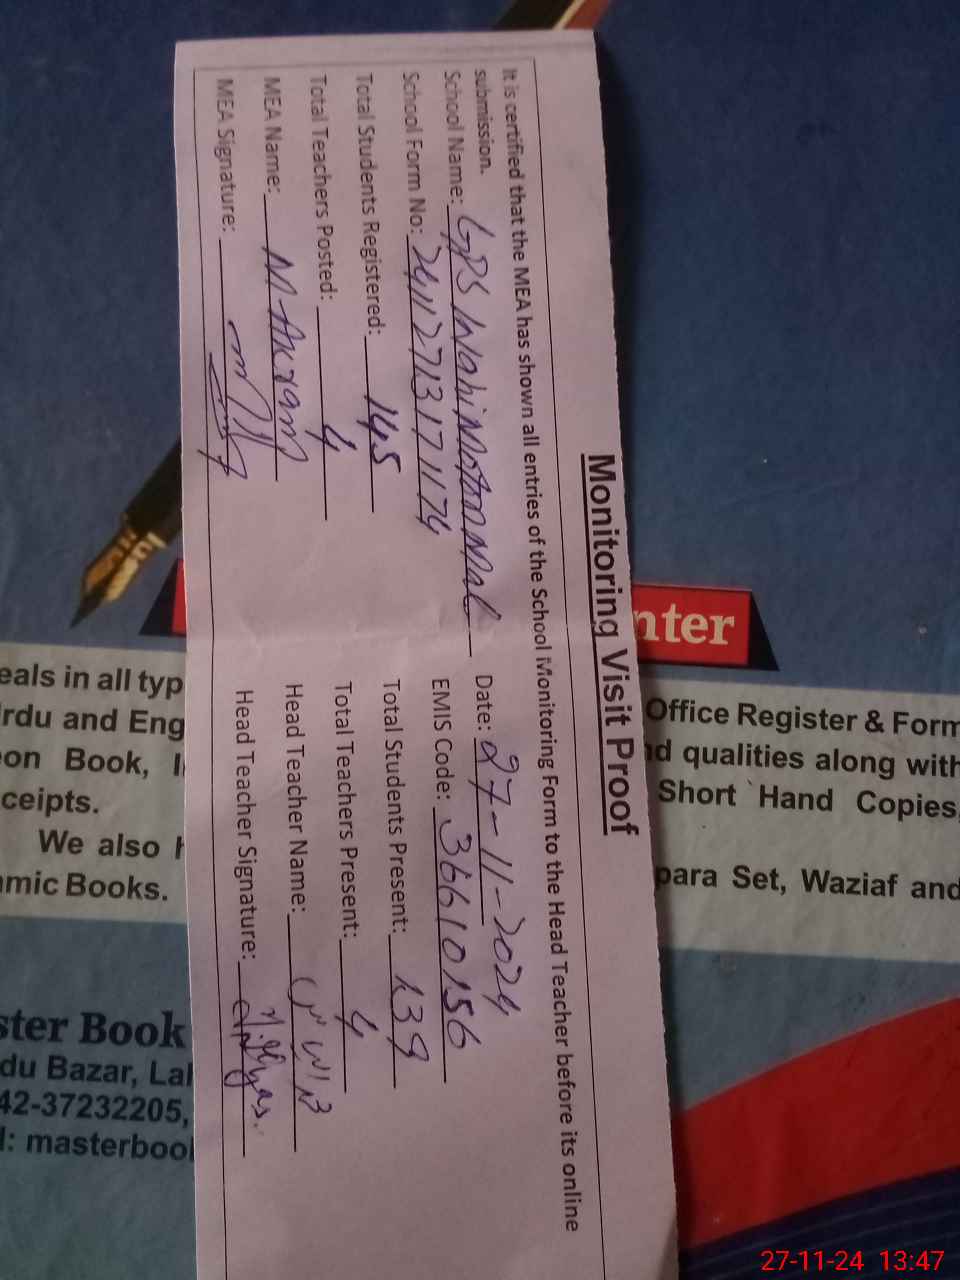 Monitoring Visit Proof
It is certified that the MEA has shown all entries of the School Monitoring Form to the Head Teacher before its online
submission.
School Name: GPS Date: 27-11-2024
School Form No: EMIS Code: 36610156
Total Students Registered: 145 Total Students Present: 139
Total Teachers Posted: 4 Total Teachers Present: 4
MEA Name: M. Akram Head Teacher Name:
MEA Signature: Head Teacher Signature:
nter
eals in all typ
rdu and Eng
on Book,
ceipts.
We also
mic Books.
Office Register & Form
d qualities along with
Short Hand Copies,
para Set, Waziaf and
ster Book
du Bazar, Lal
42-37232205,
l: masterbool
27-11-24 13:47